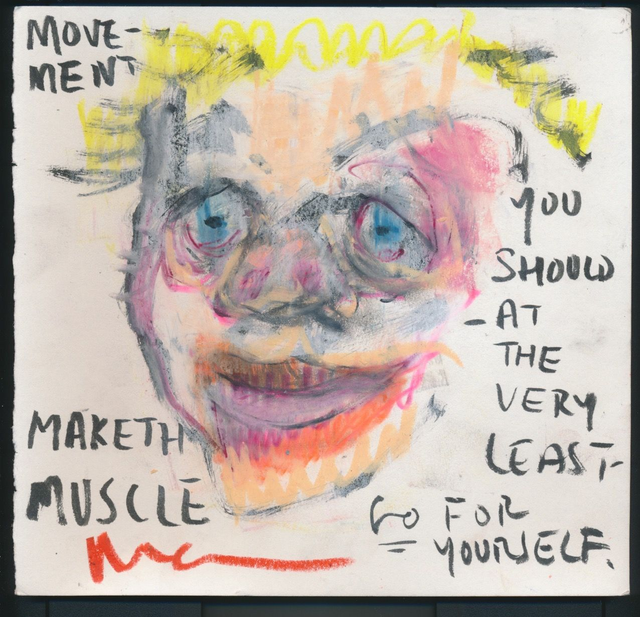 MOVE-
MENT
MAKETH
MUSCLE
YOU
SHOULD
-AT
THE
VERY
LEAST-
GO FOR
YOURSELF.